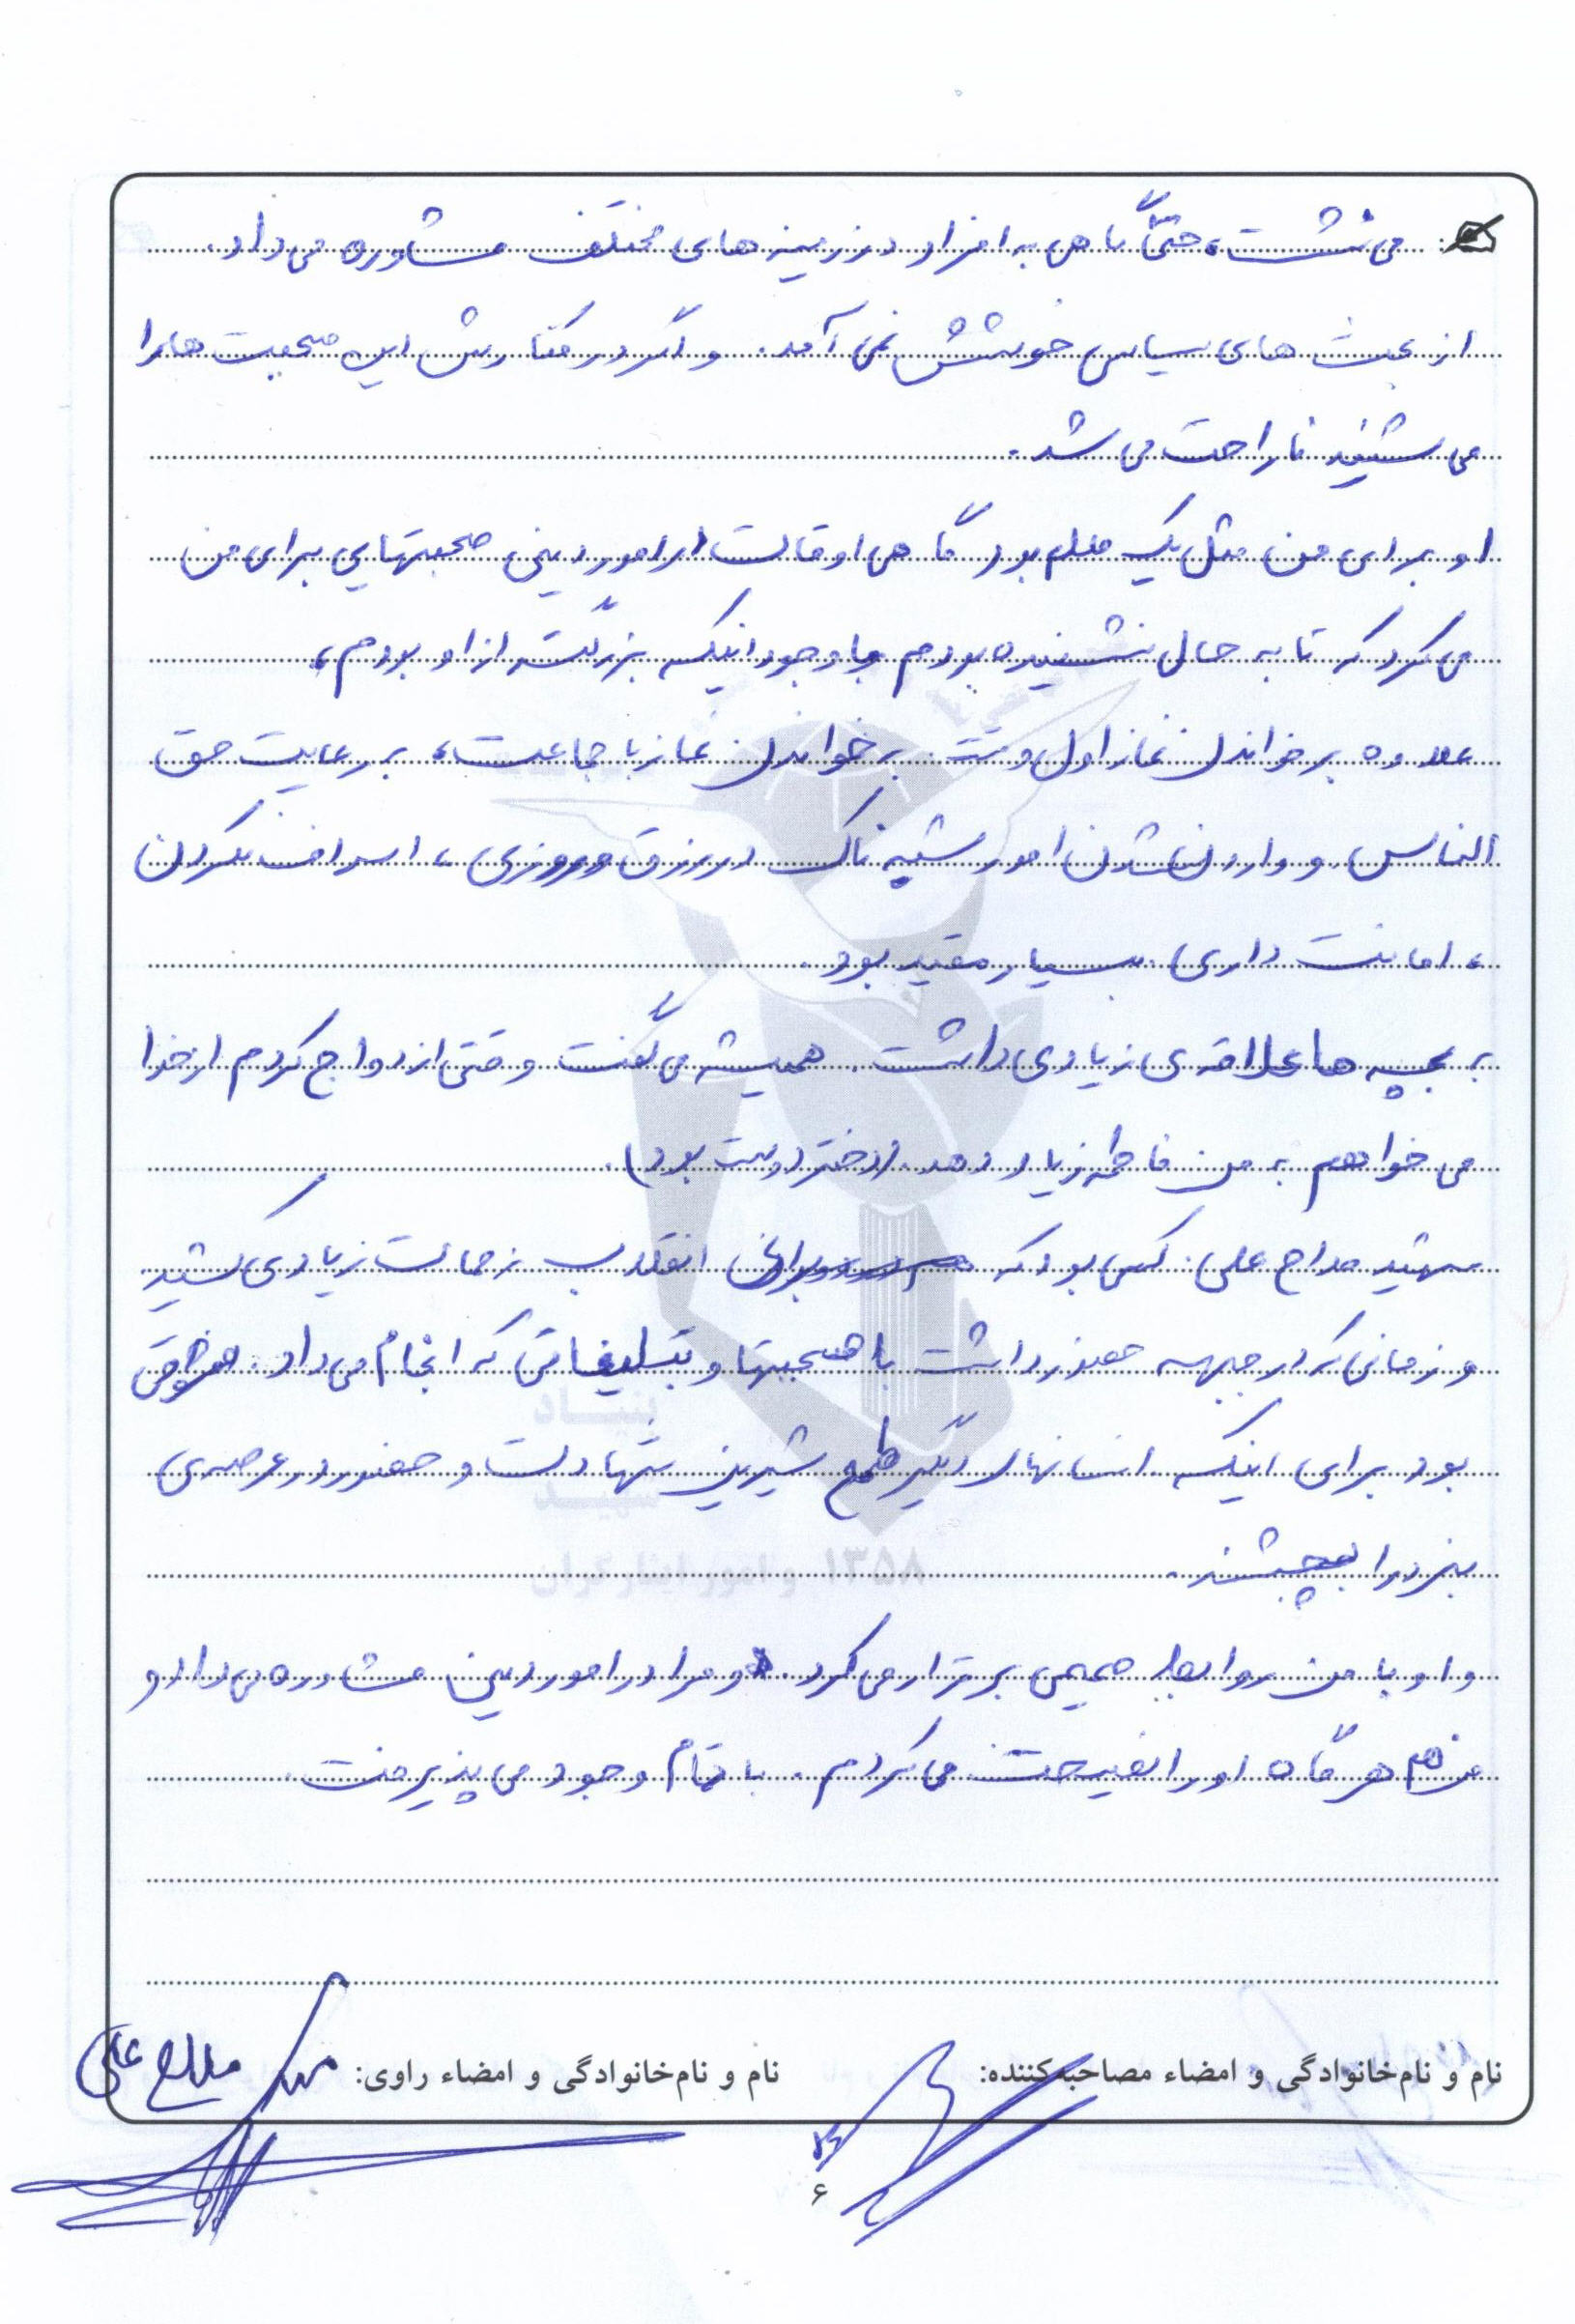 می نشست، حتّی گاهی به افراد در زمینه های مختلف مشاوره می داد.
از بحث های سیاسی خوشش نمی آمد. و اگر در کنارش این صحبت ها را
می شنید ناراحت می شد.
او برای من مثل یک معلم بود گاهی اوقات از امور دینی صحبتهایی برای من
می کرد که تا به حال نشنیده بودم با وجود اینکه بزرگتر از او بودم،
علاوه بر خواندن نماز اول وقت بر خواندن نماز با جماعت، بر رعایت حق
الناس و وارد نشدن امور شبهه ناک در رزق و روزی، اسراف نکردن
، امانت داری بسیار مقید بود.
به بچه ها علاقه ی زیادی داشت. همیشه می گفت وقتی ازدواج کردم از خدا
می خواهم به من فاطمه زیاد دهد. (دختر دوست بود).
شهید مداح علی کسی بود که برای انقلاب زحمات زیادی کشید
و زمانی که در جبهه حضور داشت با صحبتها و تبلیغاتی که انجام می داد.
بود برای اینکه انسانهای دیگر طعم شیرین شهادت و حضور در عرصه ی
نبرد را بچشند.
و او با من روابط صمیمی برقرار می کرد. و مرا در امور دینی مشاوره می داد و
من هم هر گاه او را نصیحت می کردم. با تمام وجود می پذیرفت.
نام و نام‌خانوادگی و امضاء مصاحبه‌کننده:
نام و نام‌خانوادگی و امضاء راوی: مداح علی
۶
بنیاد
شهید
و امور ایثارگران ۱۳۵۸